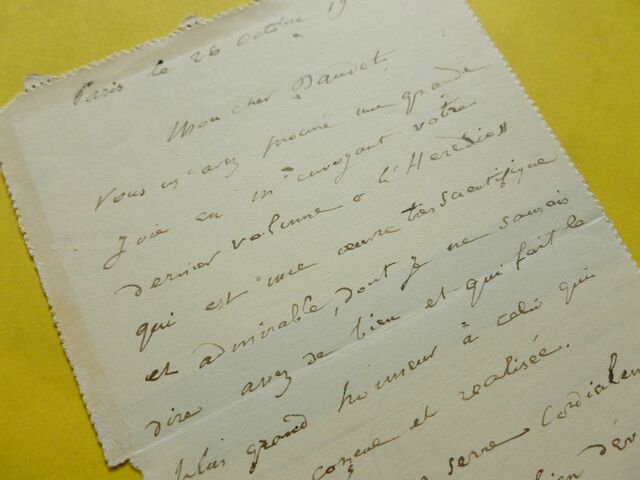 Paris le 26 Octobre 19
Mon cher Daudet
Vous m'avez procuré une grande
Joie en m'envoyant votre
dernier volume « l'Heredo »
qui est une œuvre très scientifique
et admirable, dont je ne saurais
dire assez de bien et qui fait le
plus grand honneur à celui qui
conçue et realisée.
serre Cordialem
bien dév